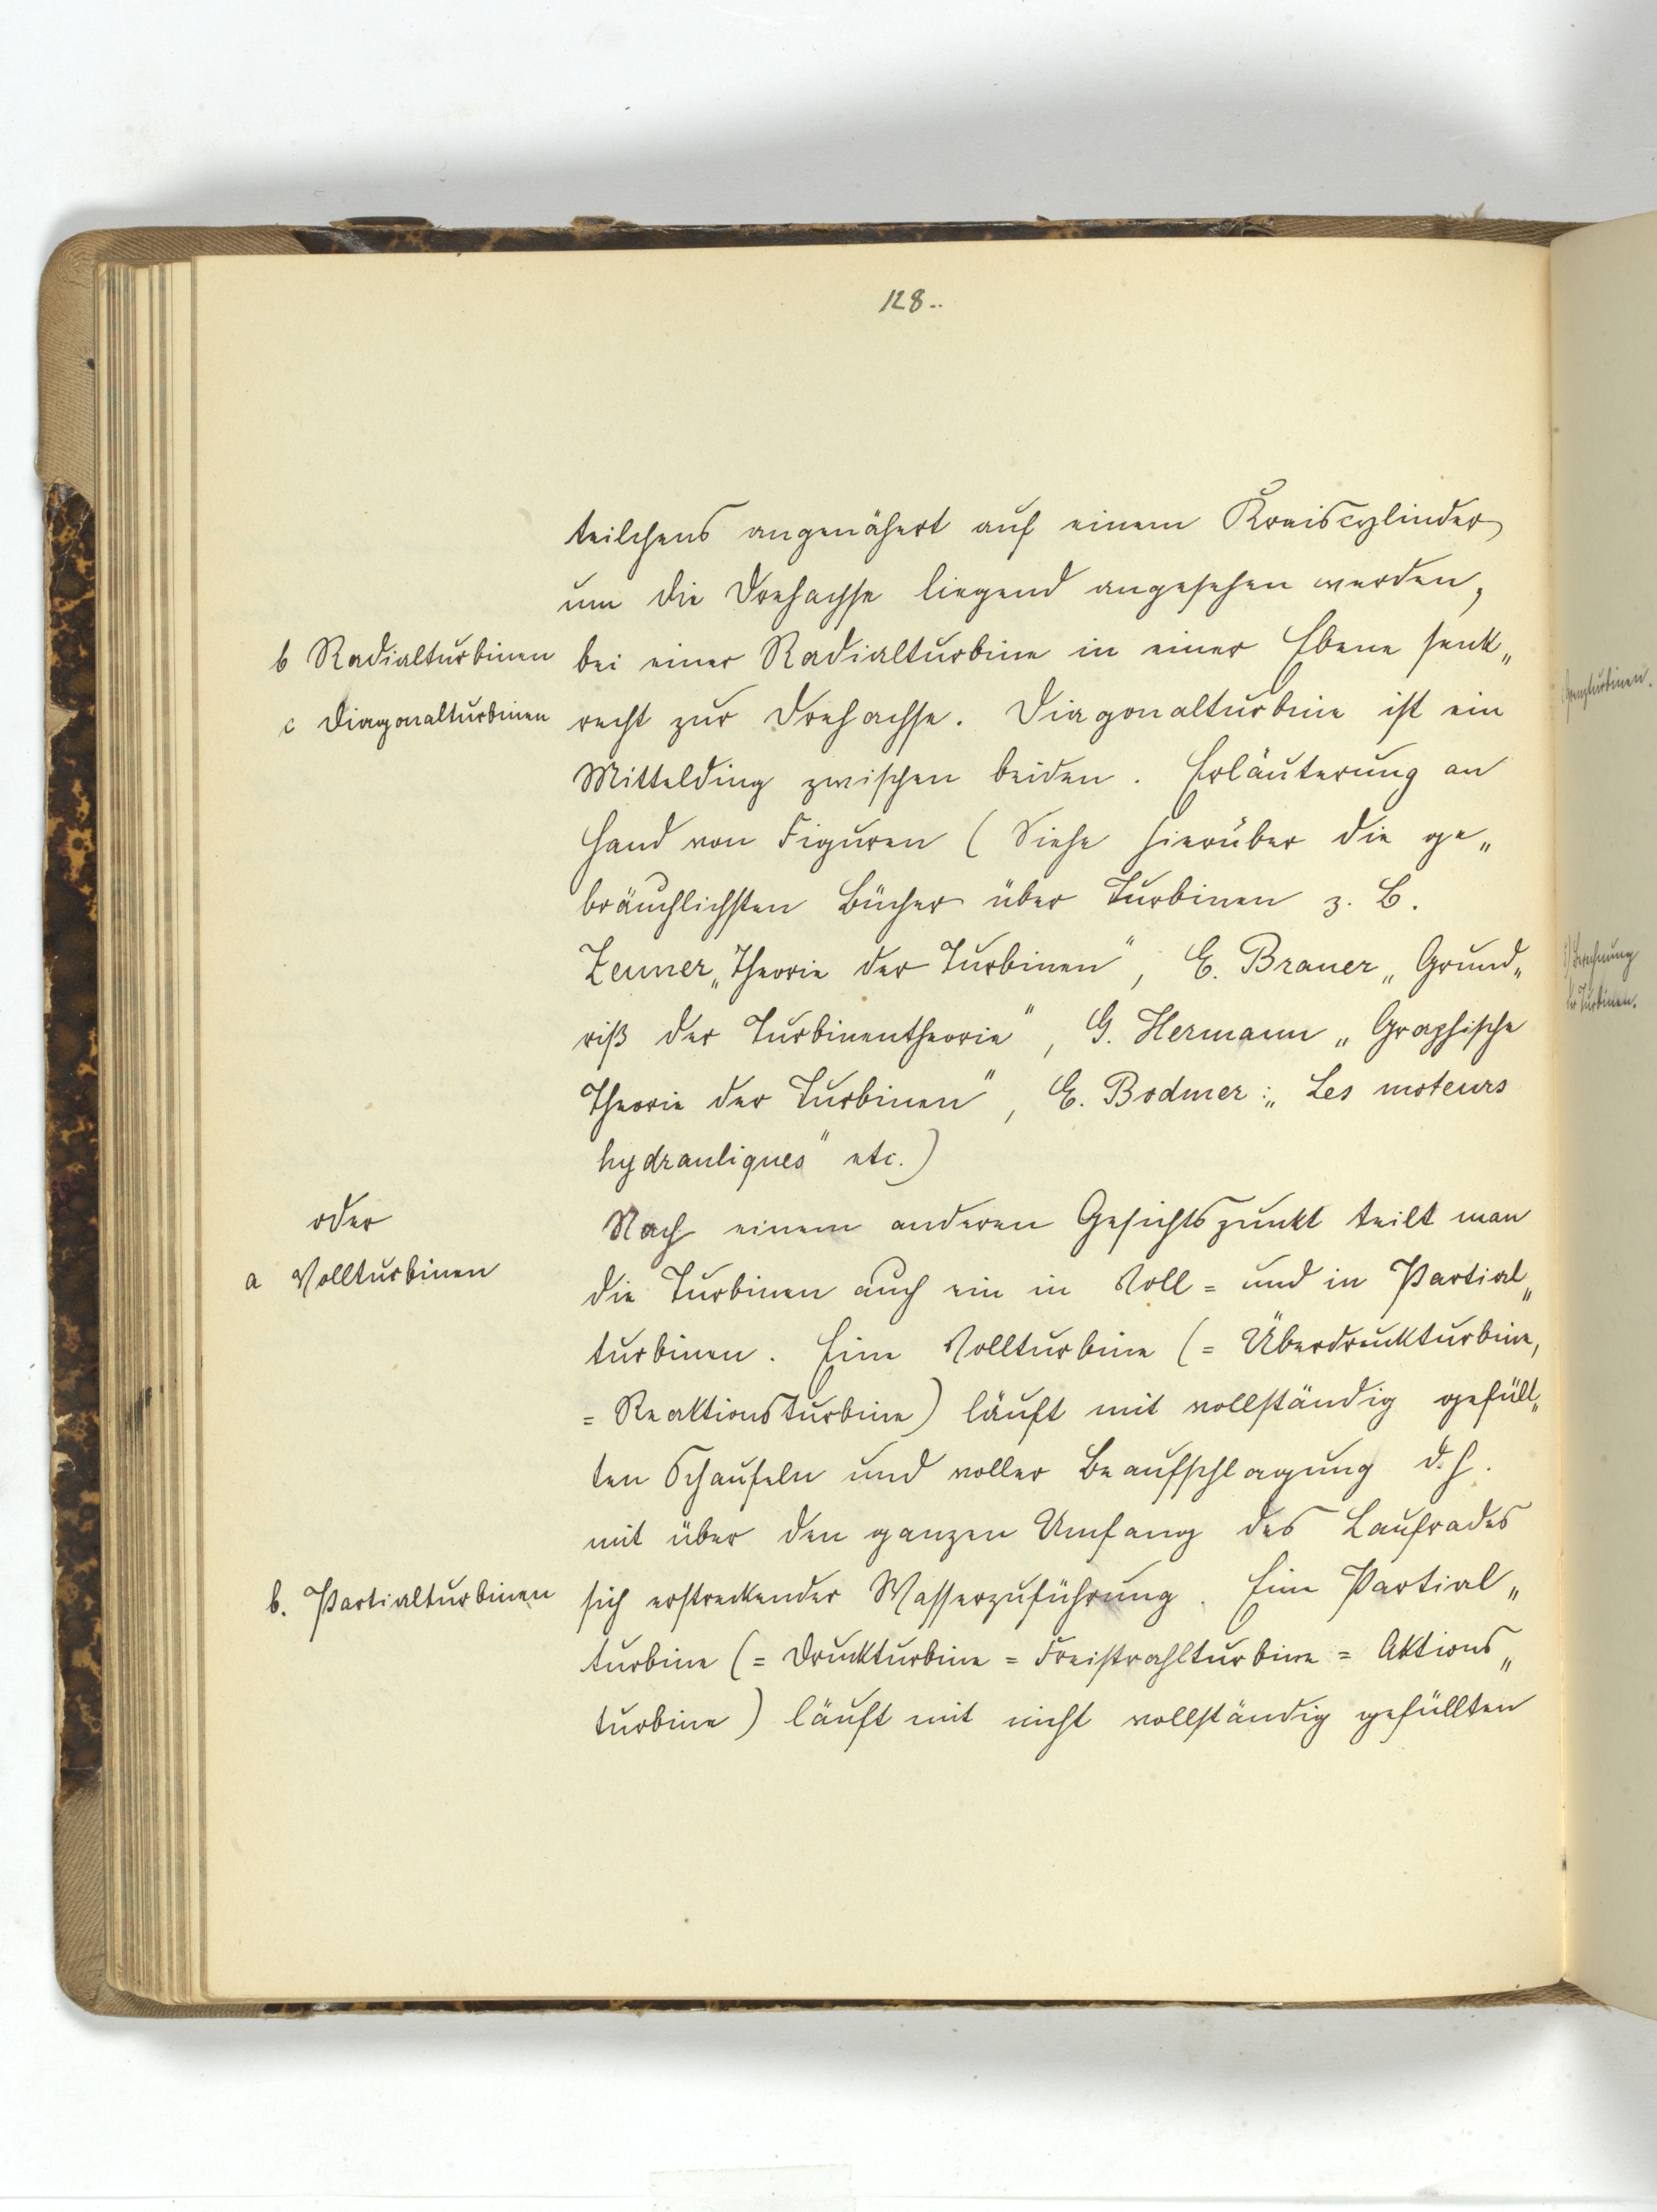 128..
teilchens angenähert auf einem Kreiscylinder
um die Drehachse liegend angesehen werden,
b Radialturbinen
bei einer Radialturbine in einer Ebene senk„
c Diagonalturbinen
recht zur Drehachse. Diagonalturbine ist ein
Mittelding zwischen beiden. Erläuterung an
Hand von Figuren (Siehe hierüber die ge„
bräuchlichsten Bücher über Turbinen z. B.
Zeuner „Theorie der Turbinen“, E. Brauer „Grund„
riß der Turbinentheorie“, G. Hermann „Graphische
Theorie der Turbinen“, E. Bodmer: „Les moteurs
hydrauliques“ etc.)
oder
Nach einem anderen Gesichtspunkt teilt man
a Vollturbinen
die Turbinen auch ein in Voll= und in Partial„
turbinen. Eine Vollturbine (= Überdruckturbine,
= Reaktionsturbine) läuft mit vollständig gefüll„
ten Schaufeln und voller Beaufschlagung d. h.
mit über den ganzen Umfang des Laufrades
b. Partialturbinen
sich erstreckender Wasserzuführung. Eine Partial„
turbine (= Druckturbine = Freistrahlturbine = Aktions„
turbine) läuft mit nicht vollständig gefüllten
Grenzturbinen.
Berechnung
der Turbinen.